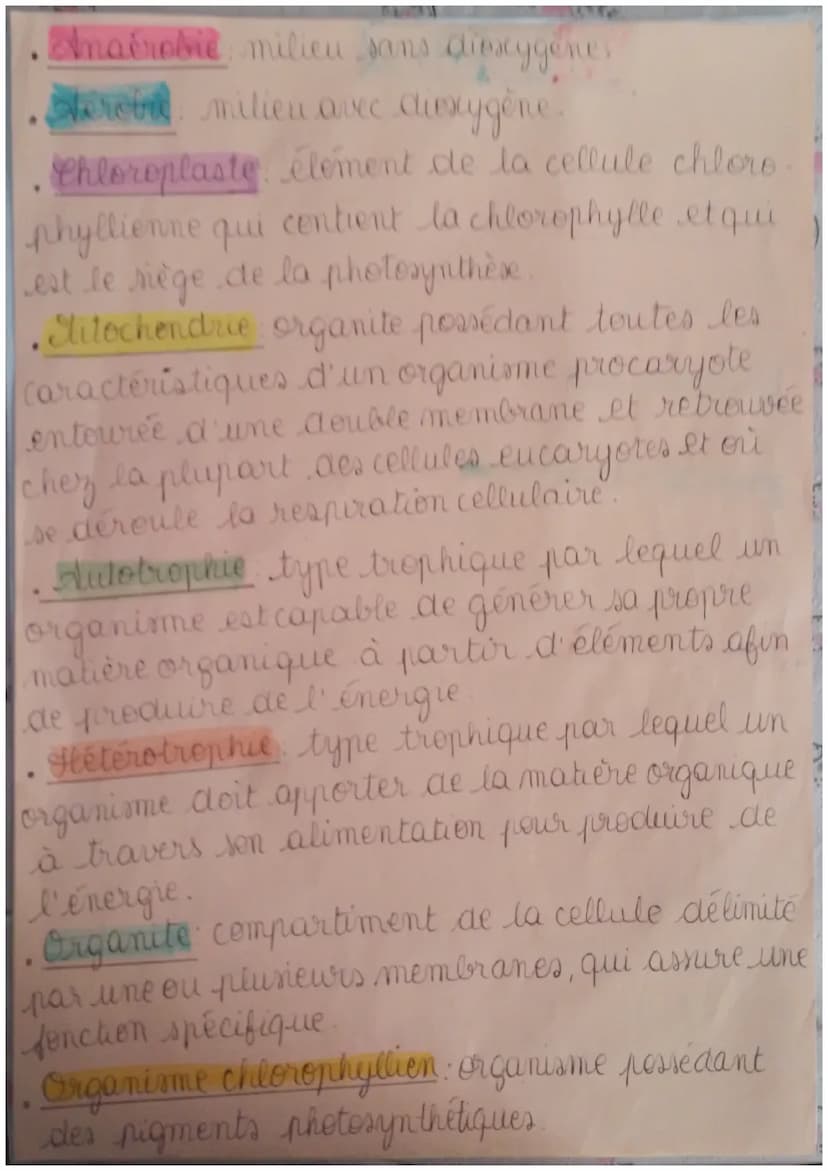 . Anaérobie : milieu sans dioxygène.
. Aérobie : milieu avec dioxygène.
. Chloroplaste : élément de la cellule chloro-
phyllienne qui contient la chlorophylle et qui
est le siège de la photosynthèse.
. Mitochondrie : organite possédant toutes les
caractéristiques d'un organisme procaryote
entourée d'une double membrane et retrouvée
chez la plupart des cellules eucaryotes et où
se déroule la respiration cellulaire.
. Autotrophie : type trophique par lequel un
organisme est capable de générer sa propre
matière organique à partir d'éléments afin
de produire de l'énergie.
. Hétérotrophie : type trophique par lequel un
organisme doit apporter de la matière organique
à travers son alimentation pour produire de
l'énergie.
. Organite : compartiment de la cellule délimité
par une ou plusieurs membranes, qui assure une
fonction spécifique.
. Organisme chlorophyllien : organisme possédant
des pigments photosynthétiques.